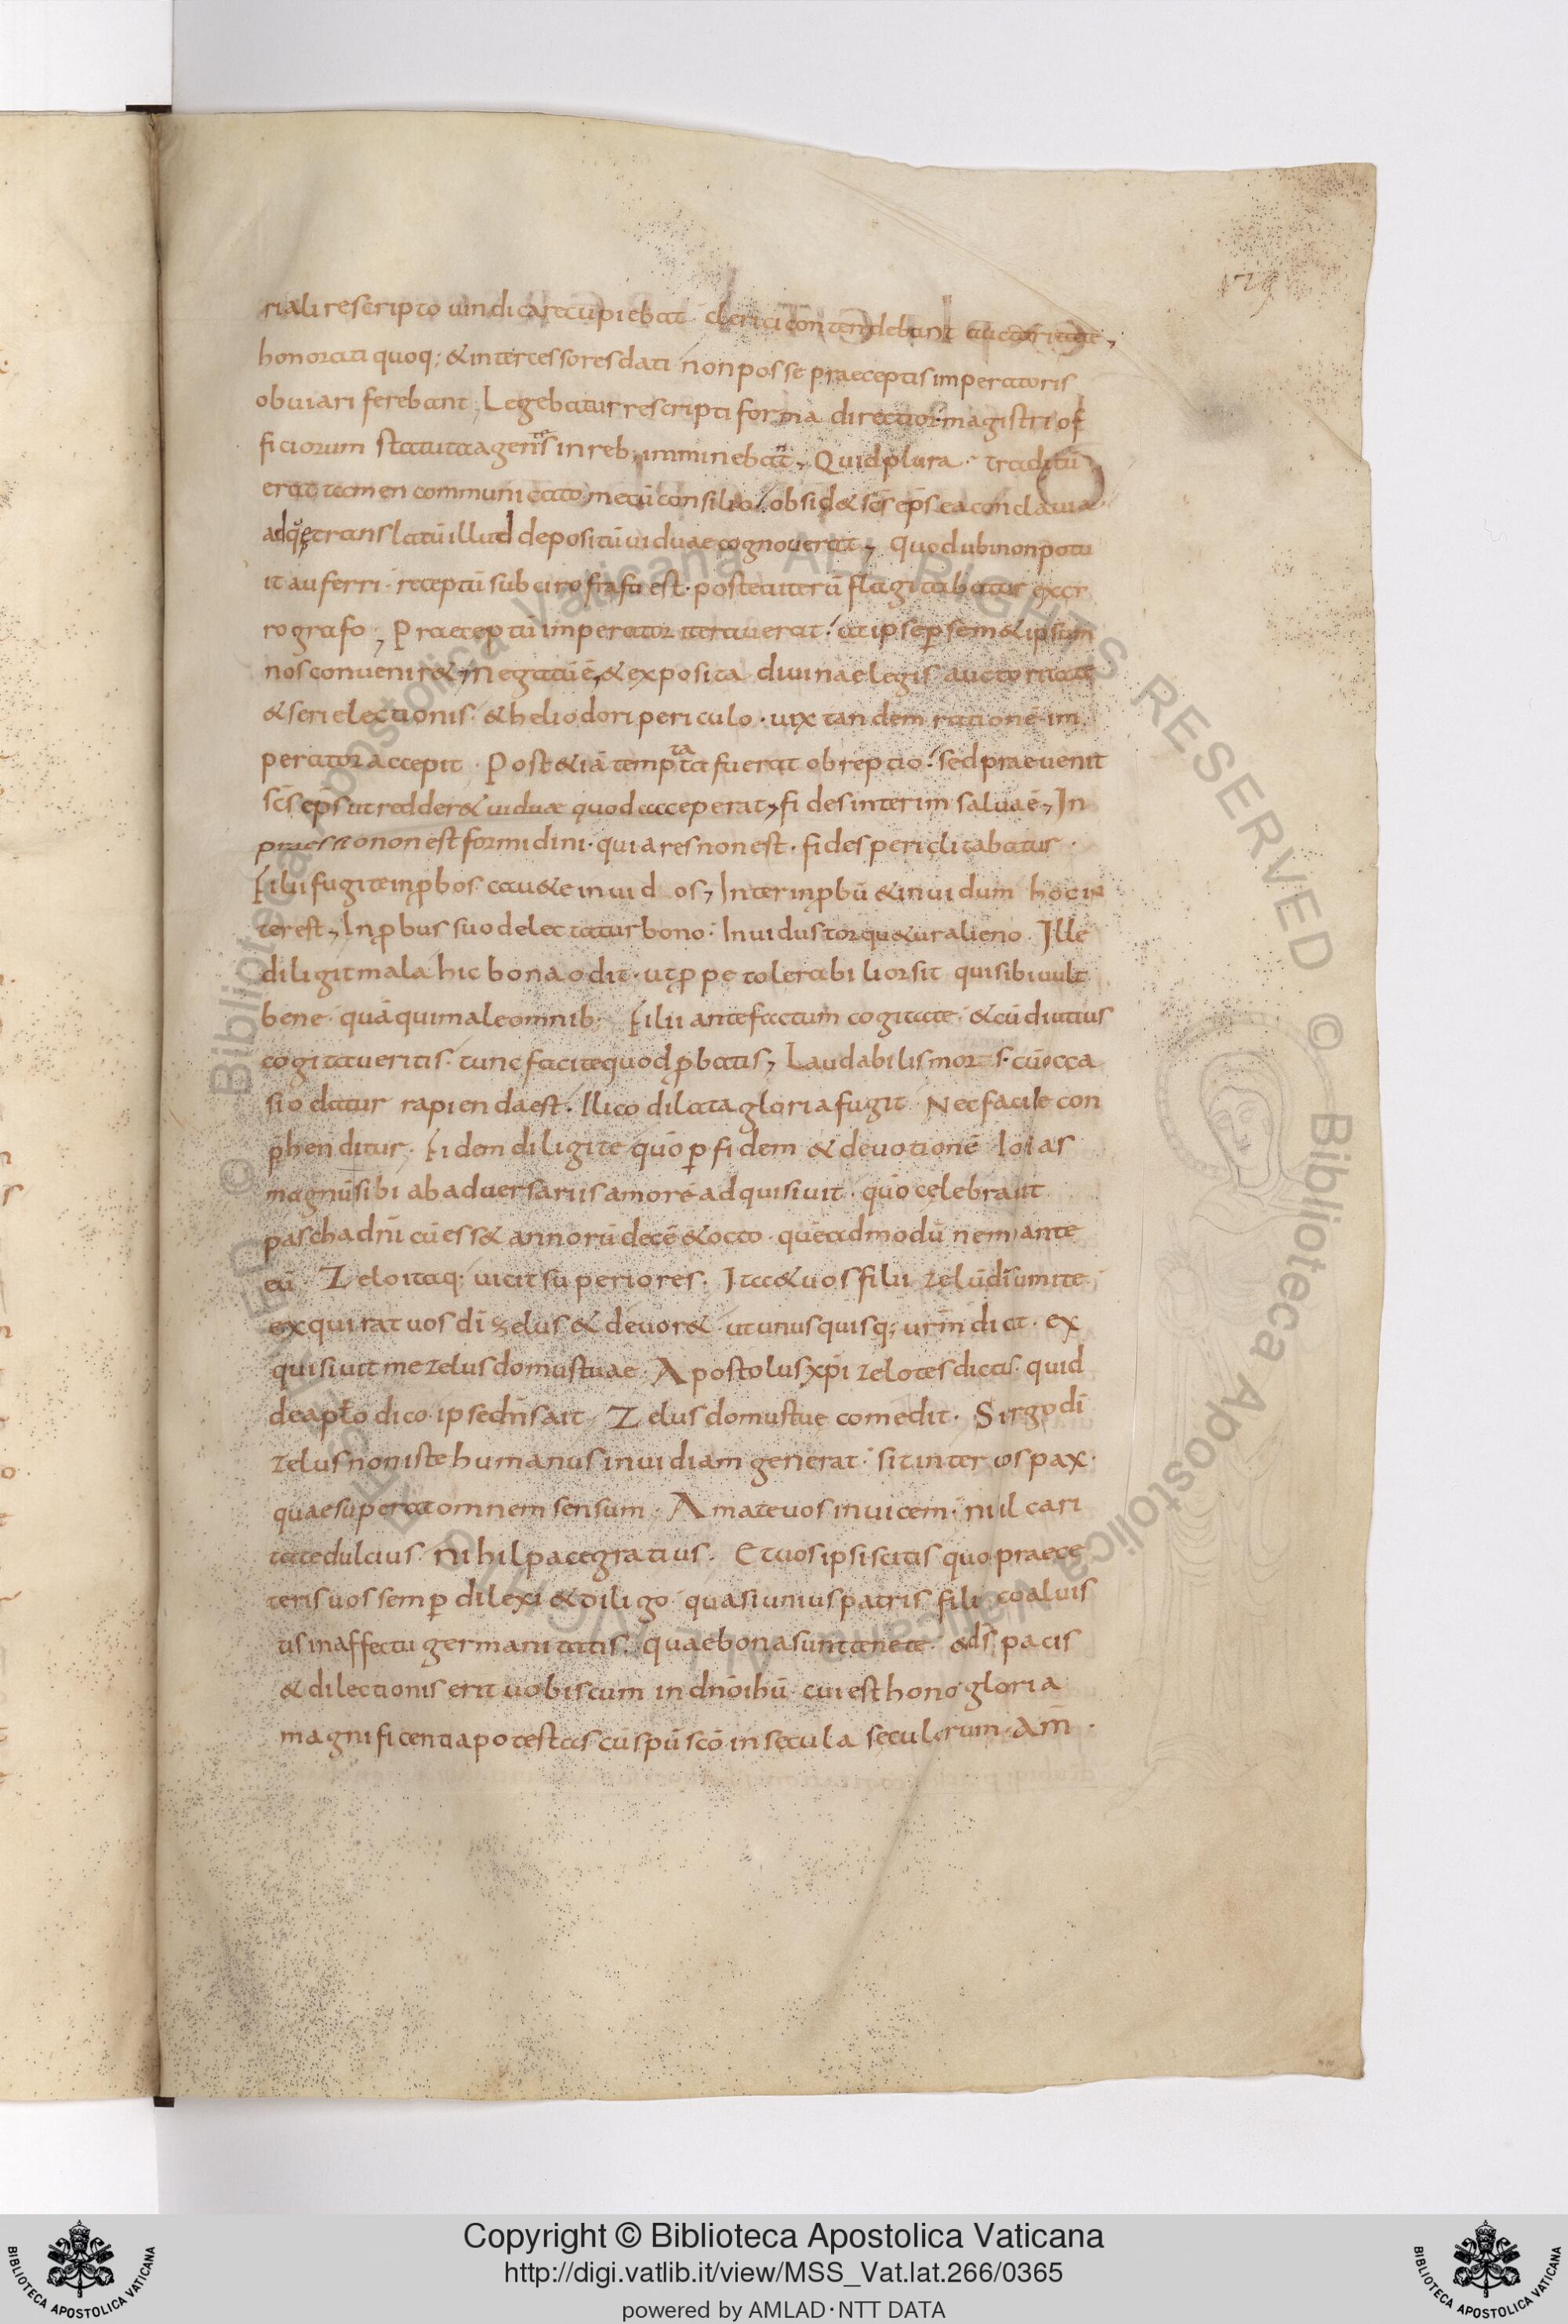 179
riali rescripto uindicare cupiebat clerici contendebant auctoritate,
honorati quoq; & intercessores dati non posse praeceptis imperatoris
obuiari ferebant, Legebatur rescripti forma directior magistri of
ficiorum statuta agens in reb; imminebat, Quid plura · traditū
erat tamen communicato mecū consilio obsid& scs eps ea conclauia
ad quę translatū illud depositū uiduae cognouerat, Quod ubi non potu
it auferri · receptū sub cirografū est · postea iterū flagitabatur ex ci
rografo, Praeceptū imperator iterauerat ut ipse p sem&ipsum
nos conuenir&, Negatū ē, & exposita diuinae legis auctoritate
& seri electionis & heliodori periculo · uix tandem rationē im
perator accepit · Post &iā temptata fuerat obreptio sed praeuenit
scs eps ut redder& uiduae quod acceperat, fides interim salua ē, In
praessio non est formidini · quia res non est · fides periclitabatur ·
Filii fugite inpbos cau&e inuidos, Inter inpbū & inuidum hoc in
terest, Inpbus suo delectatur bono · Inuidus torqu&ur alieno · Ille
diligit mala hic bona odit · ut ppe tolerabilior sit qui sibi uult
bene · quā qui male omnib; Filii ante factum cogitate · & cū diutius
cogitaueritis · tunc facite quod pbatis, Laudabilis mortis · cū occa
sio datur rapienda est · Ilico dilata gloria fugit · Nec facile con
phenditur · Fidem diligite quo p fidem & deuotionē Ioias
magnū sibi ab aduersariis amorē adquisiuit · quo celebrauit
pascha dni cū ess& annorū decē & octo · quēadmodū nem ante
eū · Zelo itaq; uicit superiores · Ita & uos filii zelū di sumite
exquirat uos di zelus & deuor& ut unus quisq; urm dicat · ex
quisiuit me zelus domus tuae · Apostolus xpi zelotes dictus · quid
de aplo dico · ipse dns ait Zelus domus tue comedit · Si rgo di
zelus non iste humanus inuidiam generat · sit inter uos pax ·
quae superat omnem sensum · Amate uos inuicem · nil cari
tate dulcius nihil pace gratius · Et uos ipsi scitis quo prae ce
teris uos semp dilexi & diligo quasi unius patris filii coaluis
tis in affectu germanitatis · quae bona sunt tenete · & ds pacis
& dilectionis erit uobiscum in dno ihu cui est hono gloria
magnificentia potestas cū spu sco in secula seculorum · Am ·
Copyright © Biblioteca Apostolica Vaticana
http://digi.vatlib.it/view/MSS_Vat.lat.266/0365
powered by AMLAD·NTT DATA
BIBLIOTECA APOSTOLICA VATICANA
BIBLIOTECA APOSTOLICA VATICANA